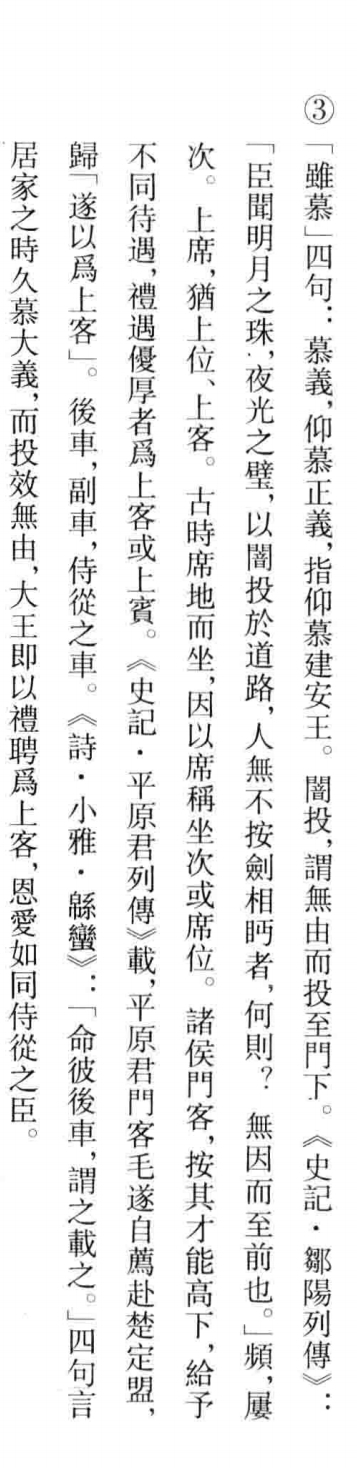 ③「雖慕」四句：慕義，仰慕正義，指仰慕建安王。闇投，謂無由而投至門下。《史記·鄒陽列傳》：
「臣聞明月之珠，夜光之璧，以闇投於道路，人無不按劍相眄者，何則？無因而至前也。」頻，屢
次。上席，猶上位、上客。古時席地而坐，因以席稱坐次或席位。諸侯門客，按其才能高下，給予
不同待遇，禮遇優厚者爲上客或上賓。《史記·平原君列傳》載，平原君門客毛遂自薦赴楚定盟，
歸「遂以爲上客」。後車，副車，侍從之車。《詩·小雅·緜蠻》：「命彼後車，謂之載之。」四句言
居家之時久慕大義，而投效無由，大王即以禮聘爲上客，恩愛如同侍從之臣。